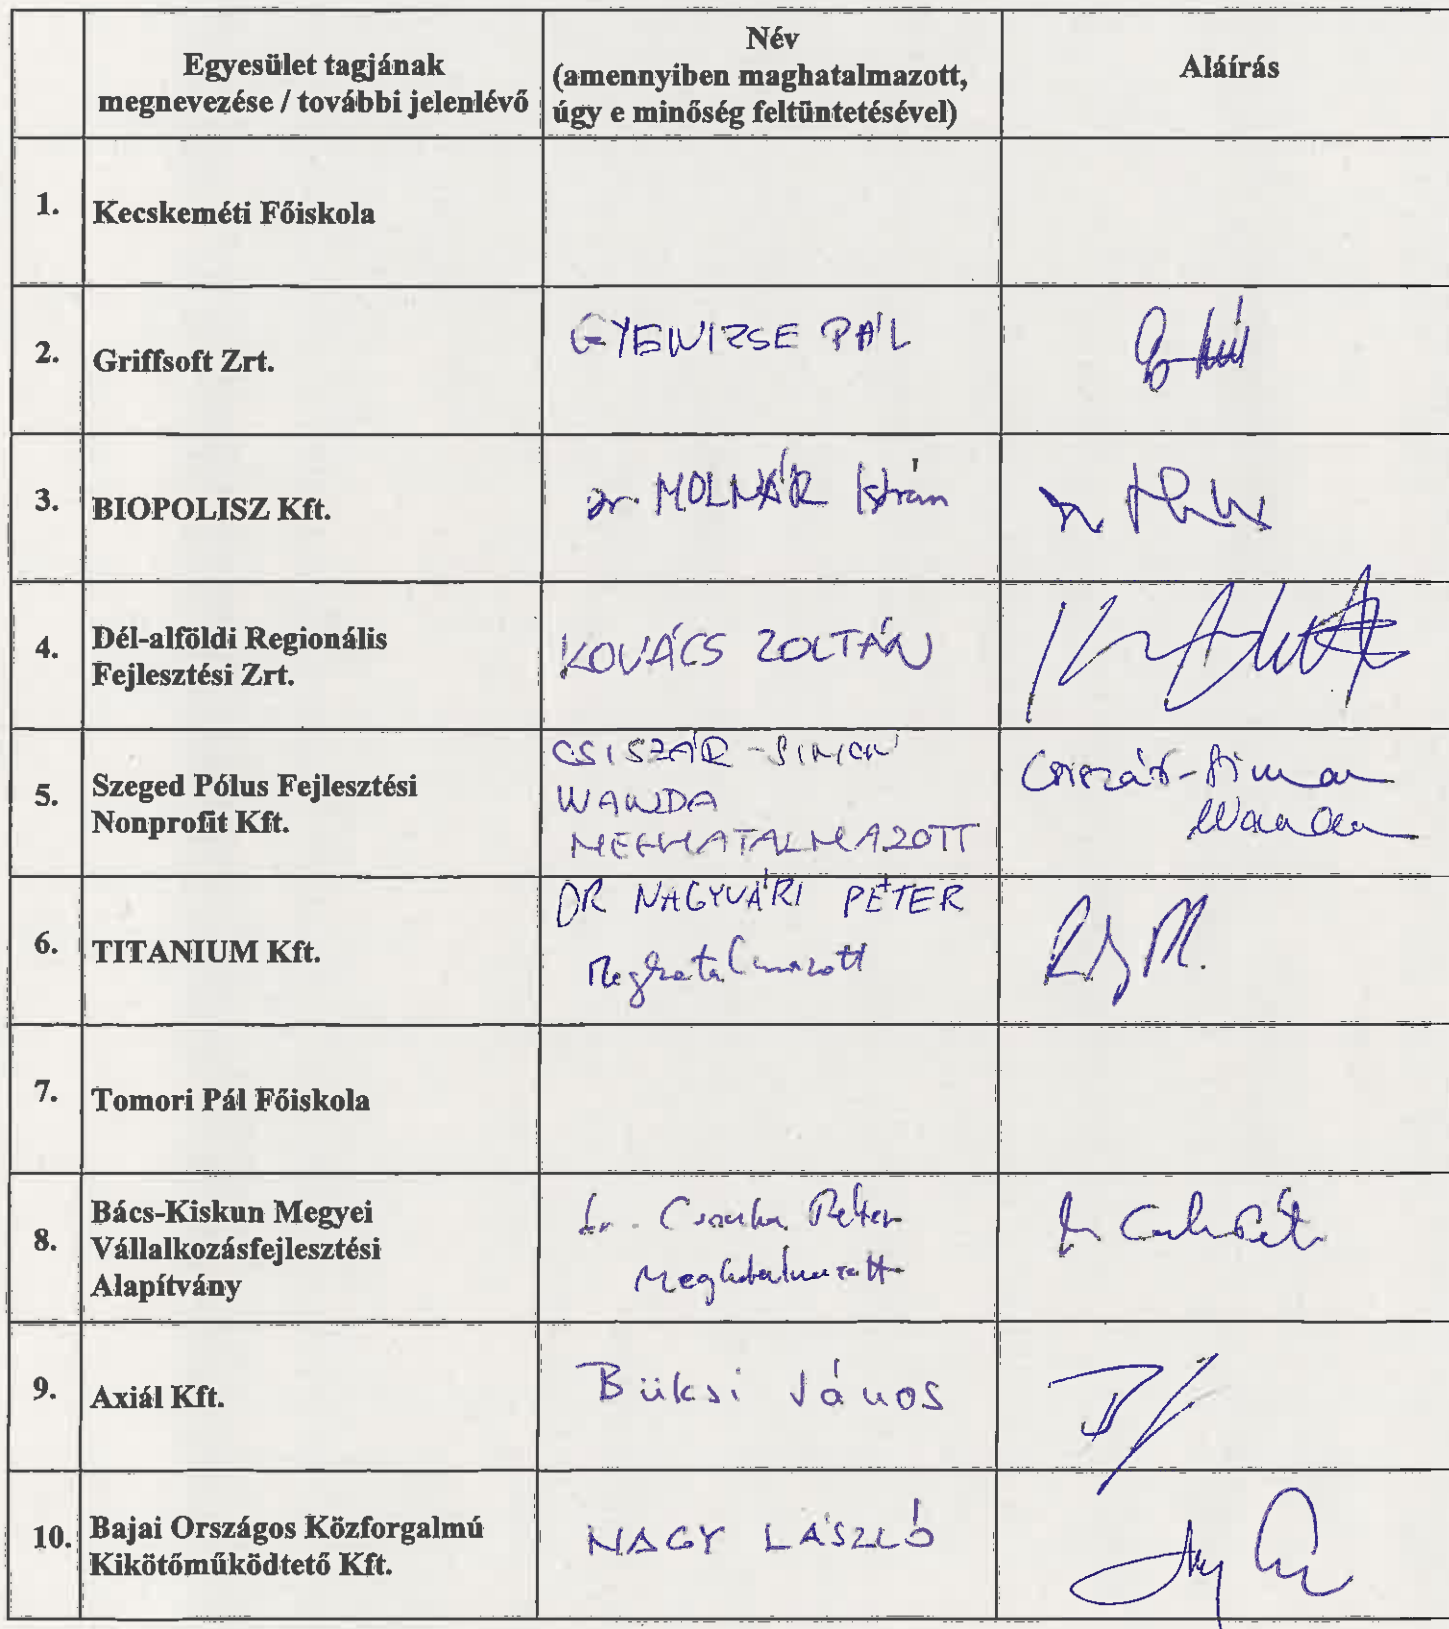 Egyesület tagjának
megnevezése / további jelenlévő
Név
(amennyiben maghatalmazott,
úgy e minőség feltüntetésével)
Aláírás
1. Kecskeméti Főiskola
2. Griffsoft Zrt. GYENIZSE PÁL
3. BIOPOLISZ Kft. dr. MOLNÁR István
4. Dél-alföldi Regionális
Fejlesztési Zrt.
KOVÁCS ZOLTÁN
5. Szeged Pólus Fejlesztési
Nonprofit Kft.
CSISZÁR-SIMON
WANDA
MEGHATALMAZOTT
Csiszár-Simon
Wanda
6. TITANIUM Kft.
DR NAGYVÁRI PÉTER
Meghatalmazott
7. Tomori Pál Főiskola
8. Bács-Kiskun Megyei
Vállalkozásfejlesztési
Alapítvány
dr. Péter
Meghatalmazott
9. Axiál Kft. Büksi János
10. Bajai Országos Közforgalmú
Kikötőműködtető Kft.
NAGY LÁSZLÓ